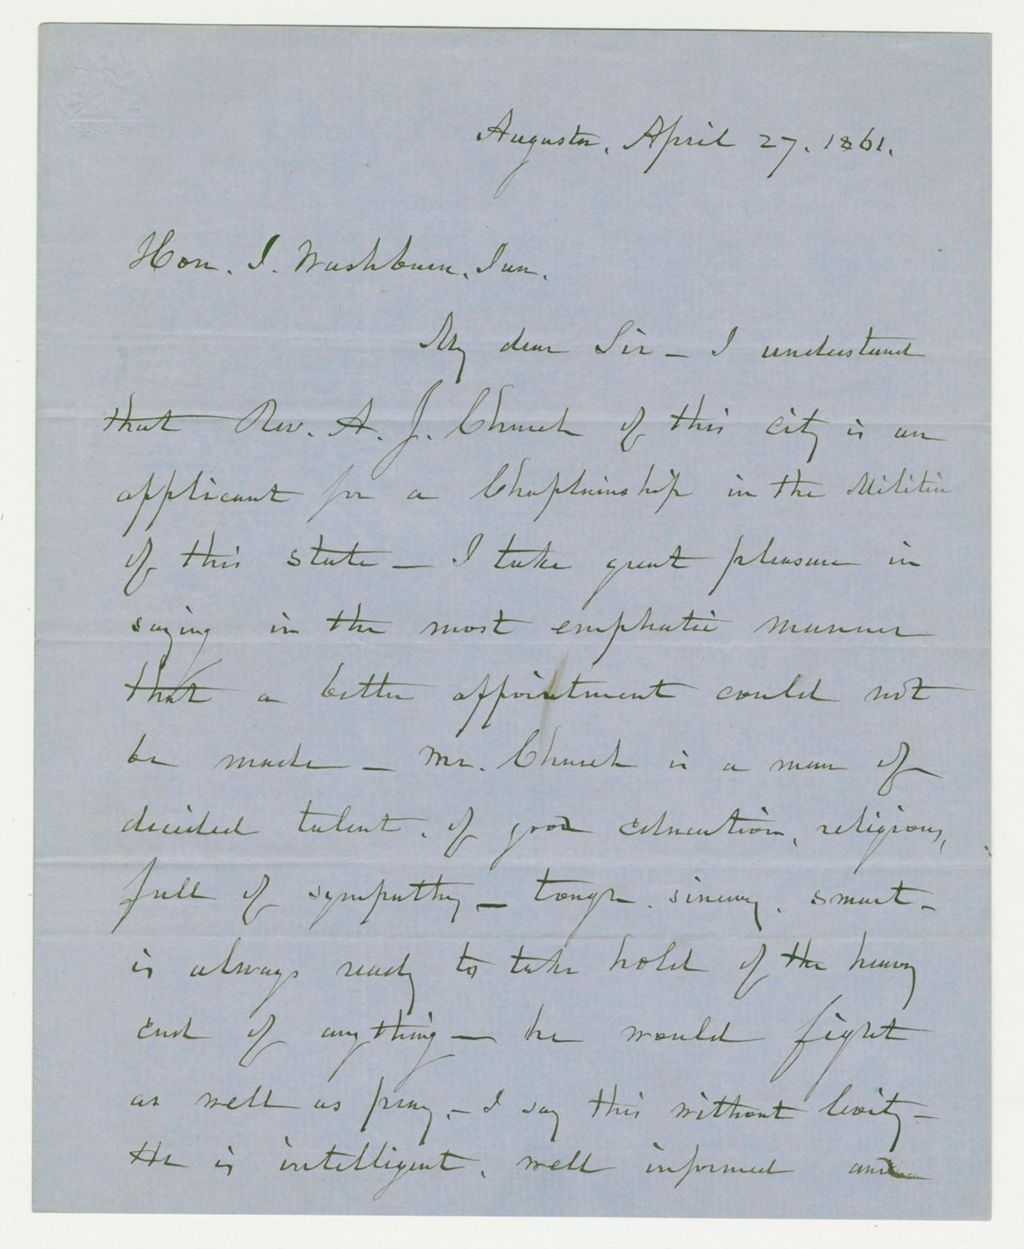 Augusta, April 27. 1861.
Hon. I. Washburn, Jun.
My dear Sir – I understand
that Rev. A. J. Church of this city is an
applicant for a Chaplainship in the Militia
of this state – I take great pleasure in
saying in the most emphatic manner
that a better appointment could not
be made – Mr. Church is a man of
decided talent, of good education, religious,
full of sympathy – tough, sinewy, smart –
is always ready to take hold of the heavy
end of anything – he would fight
as well as pray – I say this without levity –
He is intelligent, well informed and